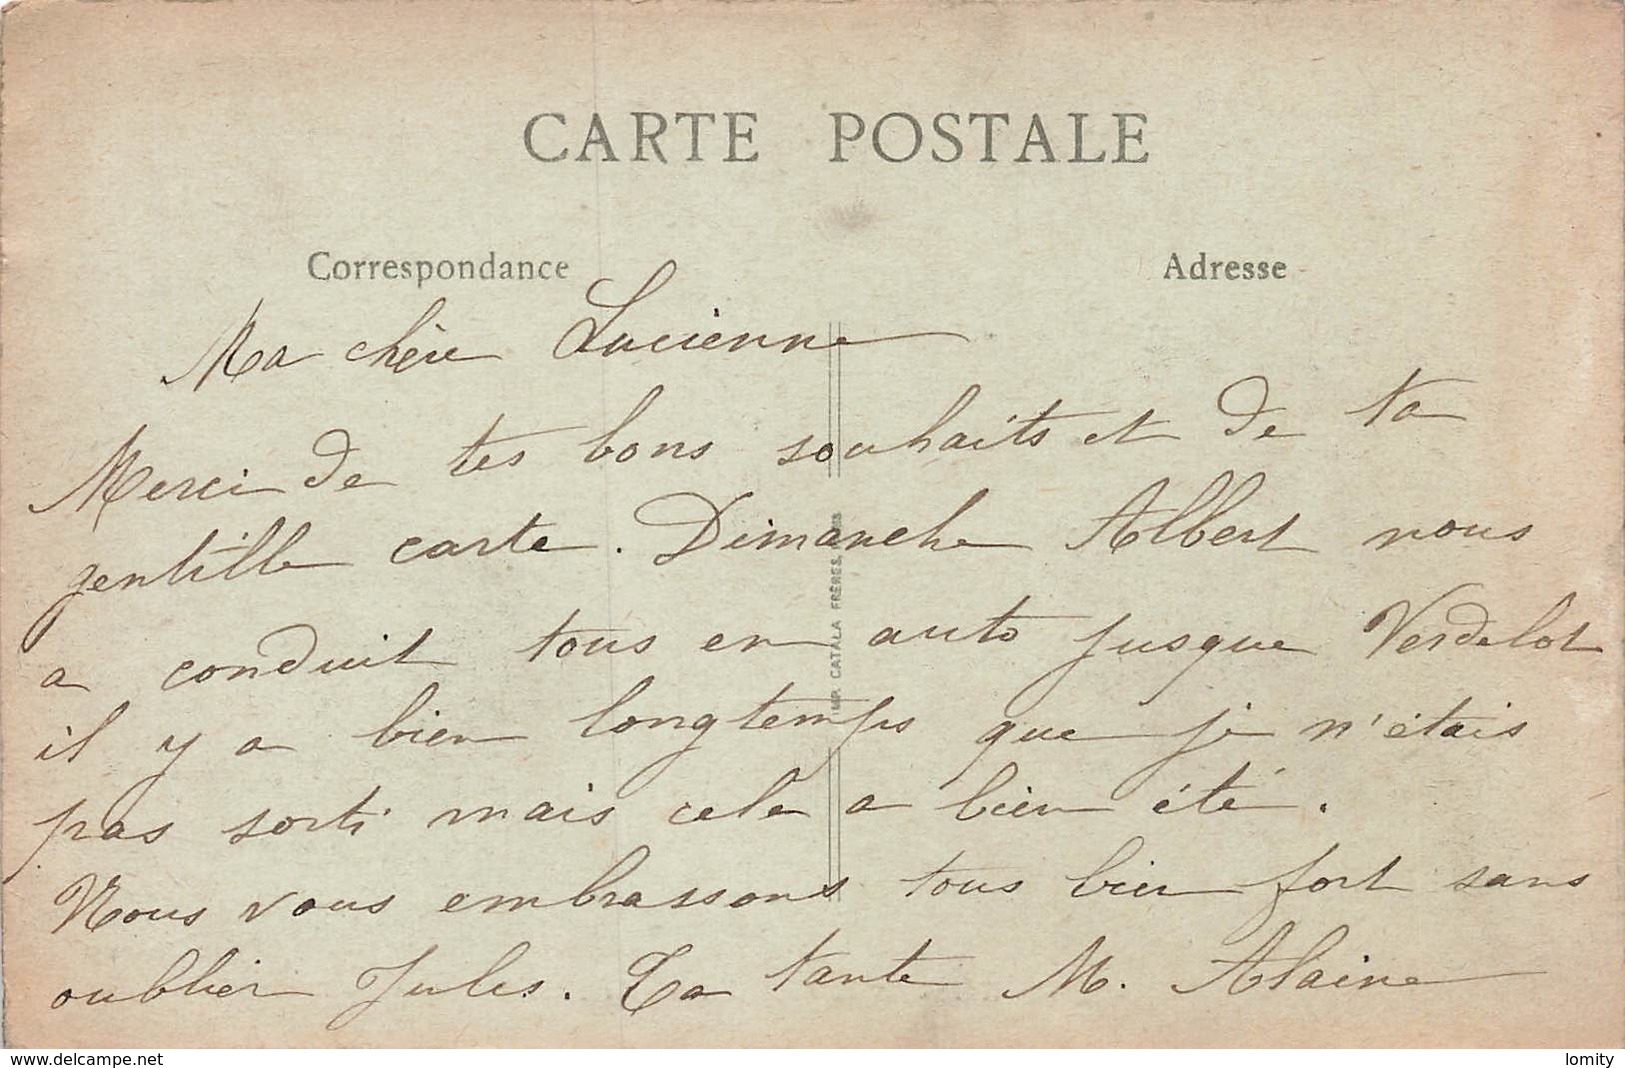 CARTE POSTALE
Correspondance
Adresse
Ma chère Lucienne
Merci de tes bons souhaits et de ta
gentille carte. Dimanche Albert nous
a conduit tous en auto jusque Verdelot
il y a bien longtemps que je n'étais
pas sorti mais cela a bien été.
Nous vous embrassons tous bien fort sans
oublier Jules. Ta tante M. Alaine
IMP. CATALA FRÈRES, PARIS
www.delcampe.net
lomity